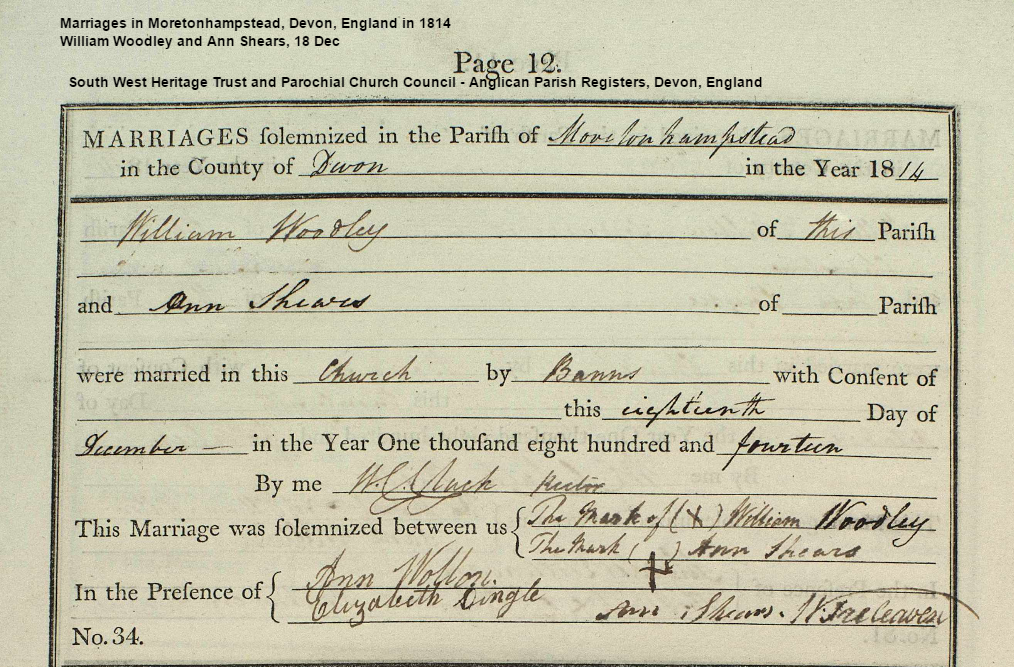 Marriages in Moretonhampstead, Devon, England in 1814
William Woodley and Ann Shears, 18 Dec
Page 12.
South West Heritage Trust and Parochial Church Council - Anglican Parish Registers, Devon, England
MARRIAGES ſolemnized in the Pariſh of Moretonhampstead
in the County of Devon in the Year 1814
William Woodley of this Pariſh
and Ann Shears of Pariſh
were married in this Church by Banns with Conſent of
this eighteenth Day of
December — in the Year One thouſand eight hundred and fourteen
By me Rector
This Marriage was ſolemnized between us { The Mark of (X) William Woodley
The Mark ( X ) Ann Shears
In the Preſence of { Ann Wollon.
Elizabeth Lingle Ann Shears. W Treleaven
No. 34.